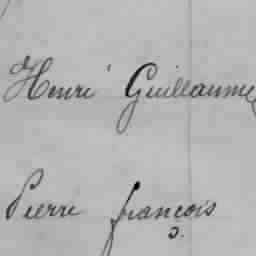 Henri Guillaume
Pierre françois